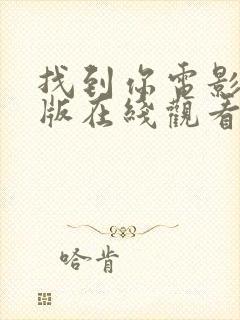 找到你电影
版在线觀看
哈肯